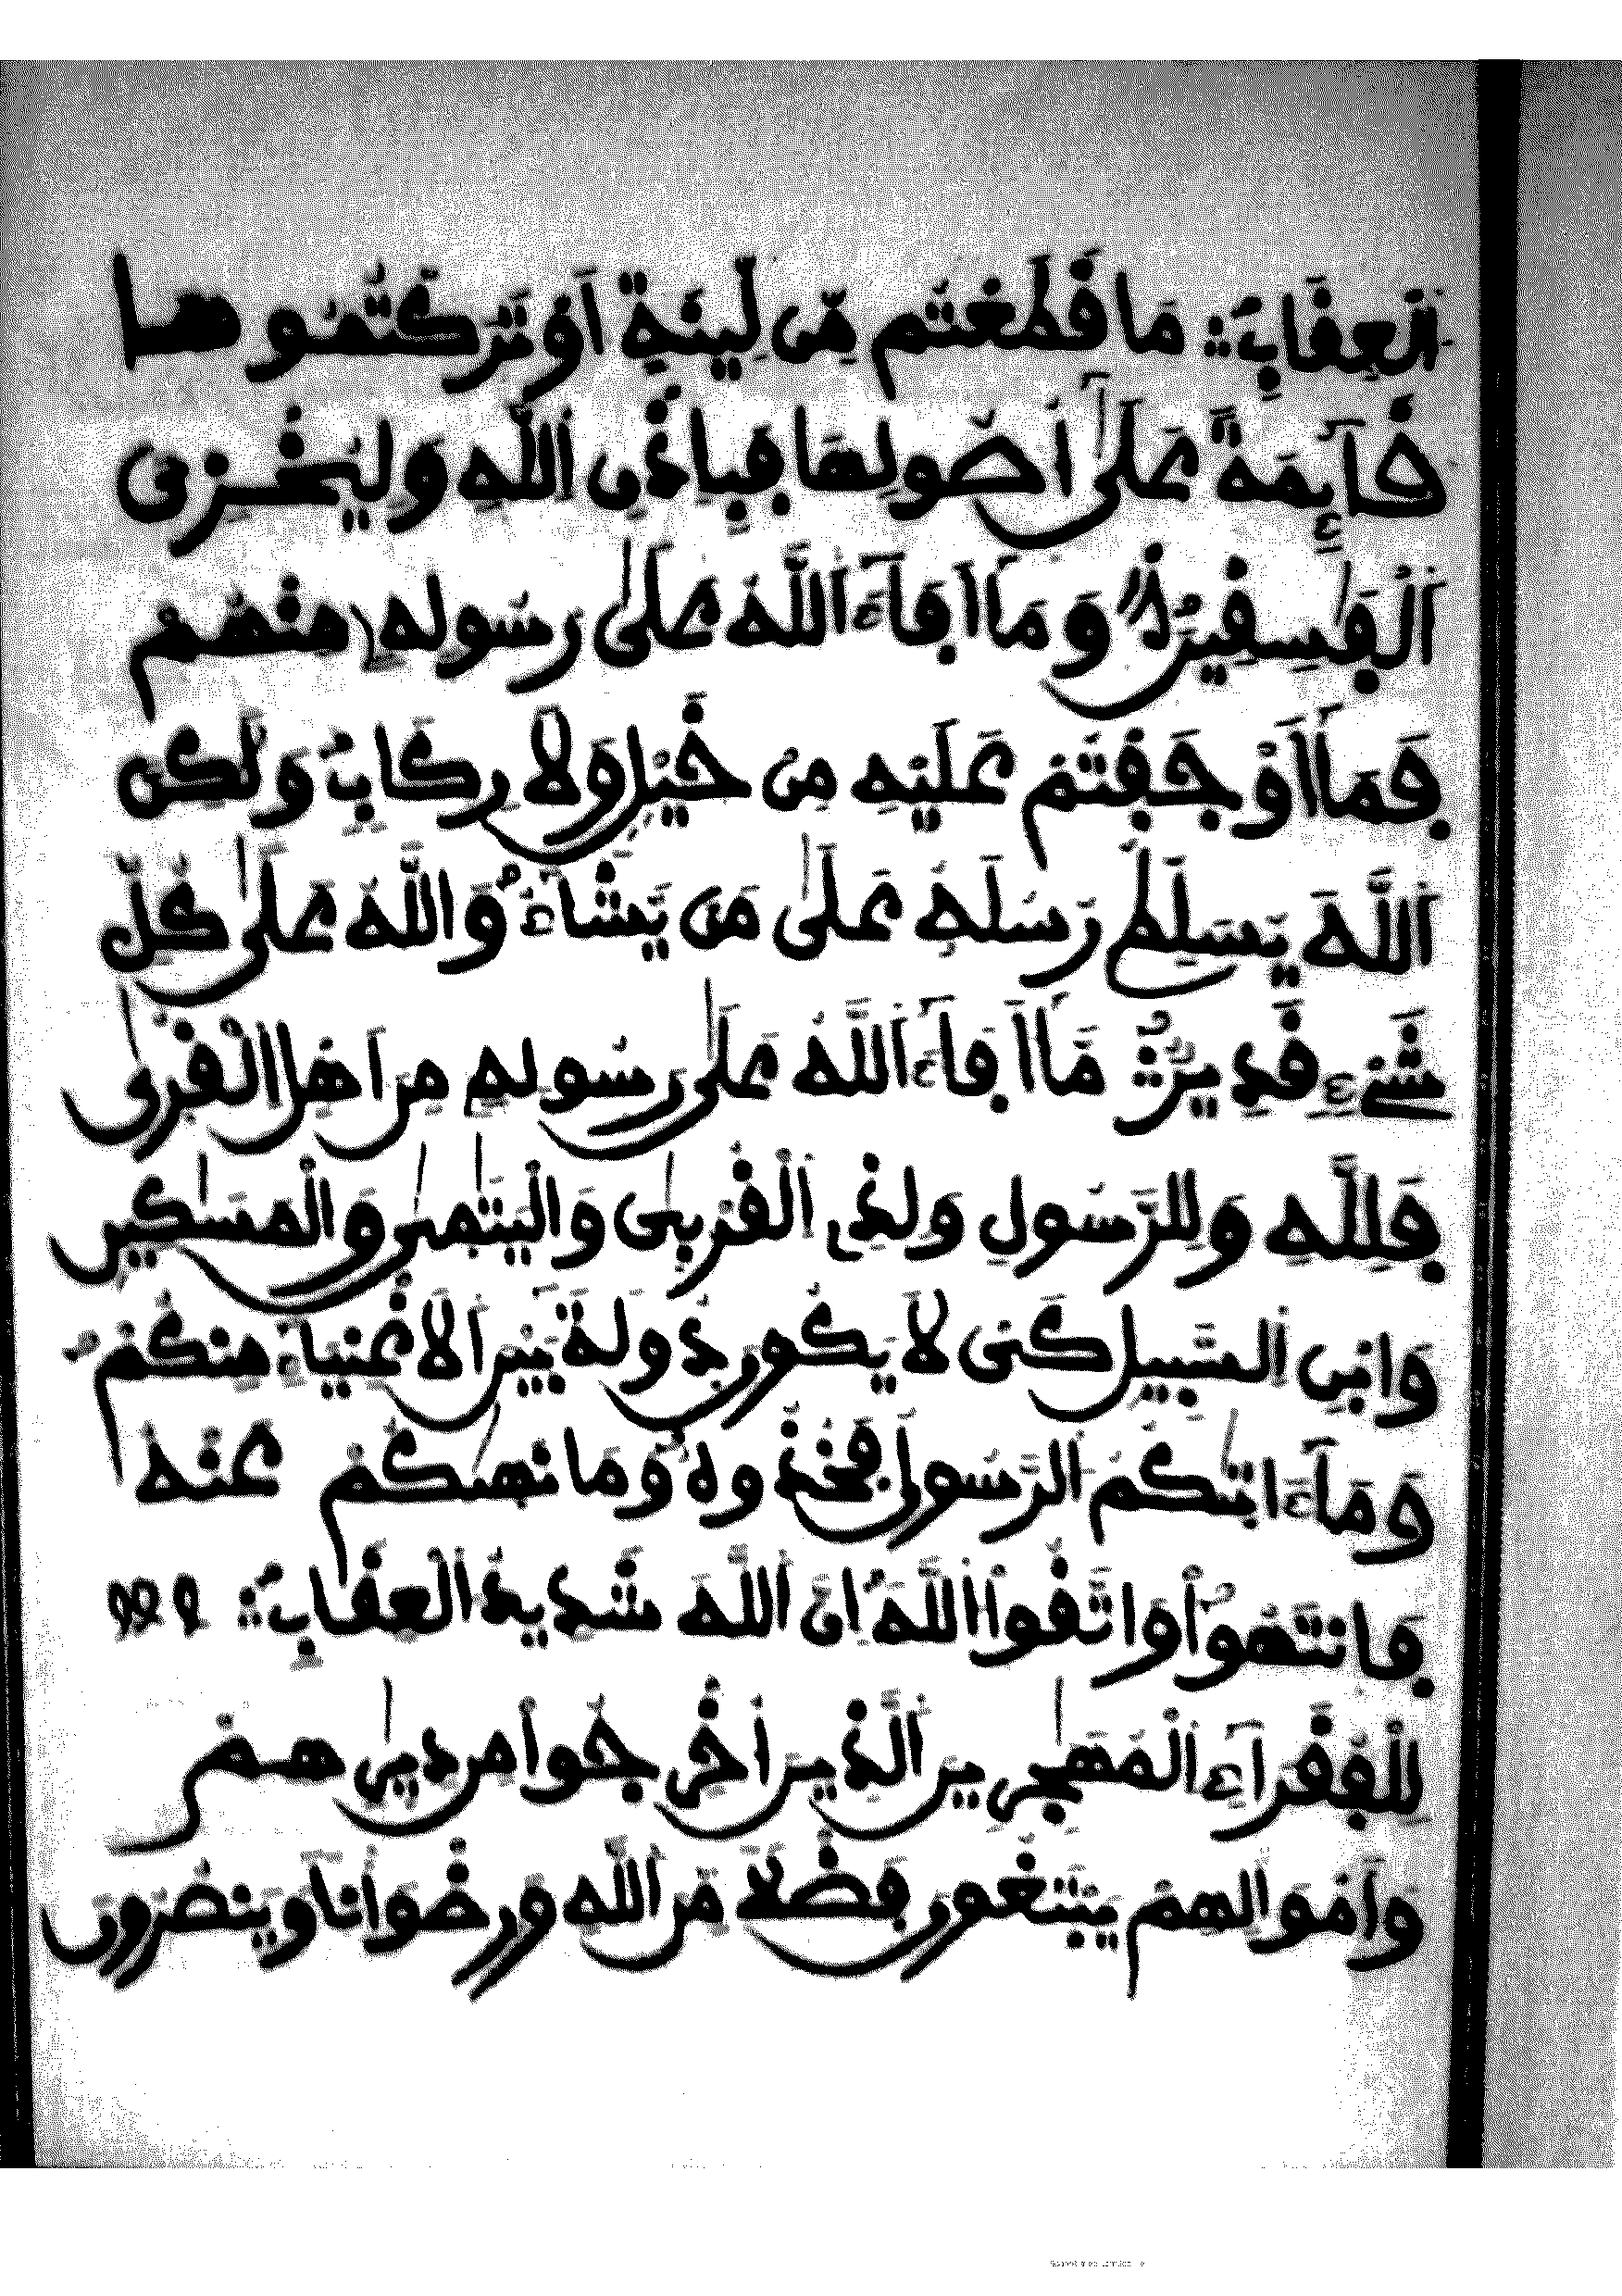 اَلْعِقَابِ مَا قَطَعْتُم مِّن لِّينَةٍ اَوْ تَرَكْتُمُوهَا
قَآئِمَةً عَلَىٰ أُصُولِهَا فَبِإِذْنِ اِللَّهِ وَلِيُخْزِىَ
اَلْفَٰسِقِينَ وَمَا أَفَآءَ اَللَّهُ عَلَىٰ رَسُولِهِ مِنْهُمْ
فَمَا أَوْجَفْتُمْ عَلَيْهِ مِنْ خَيْلٍ وَلَا رِكَابٍ وَلَكِنَّ
اَللَّهَ يُسَلِّطُ رُسُلَهُ عَلَىٰ مَن يَّشَآءُ وَاللَّهُ عَلَىٰ كُلِّ
شَىْءٍ قَدِيرٌ مَّا أَفَآءَ اَللَّهُ عَلَىٰ رَسُولِهِ مِنَ اَهْلِ اِلْقُرَىٰ
فَلِلَّهِ وَلِلرَّسُولِ وَلِذِى اِلْقُرْبَىٰ وَالْيَتَٰمَىٰ وَالْمَسَٰكِينِ
وَابْنِ اِلسَّبِيلِ كَىْ لَا يَكُونَ دُولَةً بَيْنَ اَلَاغْنِيَآءِ مِنكُمْ
وَمَآ ءَاتَىٰكُمُ اُلرَّسُولُ فَخُذُوهُ وَمَا نَهَىٰكُمْ عَنْهُ
فَانتَهُوا وَاتَّقُوا اُللَّهَ إِنَّ اَللَّهَ شَدِيدُ اُلْعِقَابِ
لِلْفُقَرَآءِ اِلْمُهَٰجِرِينَ اَلَّذِينَ أُخْرِجُوا مِن دِيَٰرِهِمْ
وَأَمْوَالِهِمْ يَبْتَغُونَ فَضْلًا مِّنَ اَللَّهِ وَرِضْوَانًا وَيَنصُرُونَ